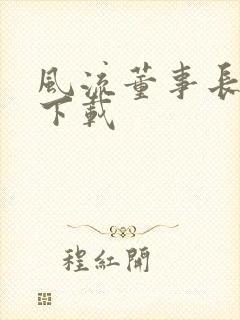 風流董事長
下載
程紅開